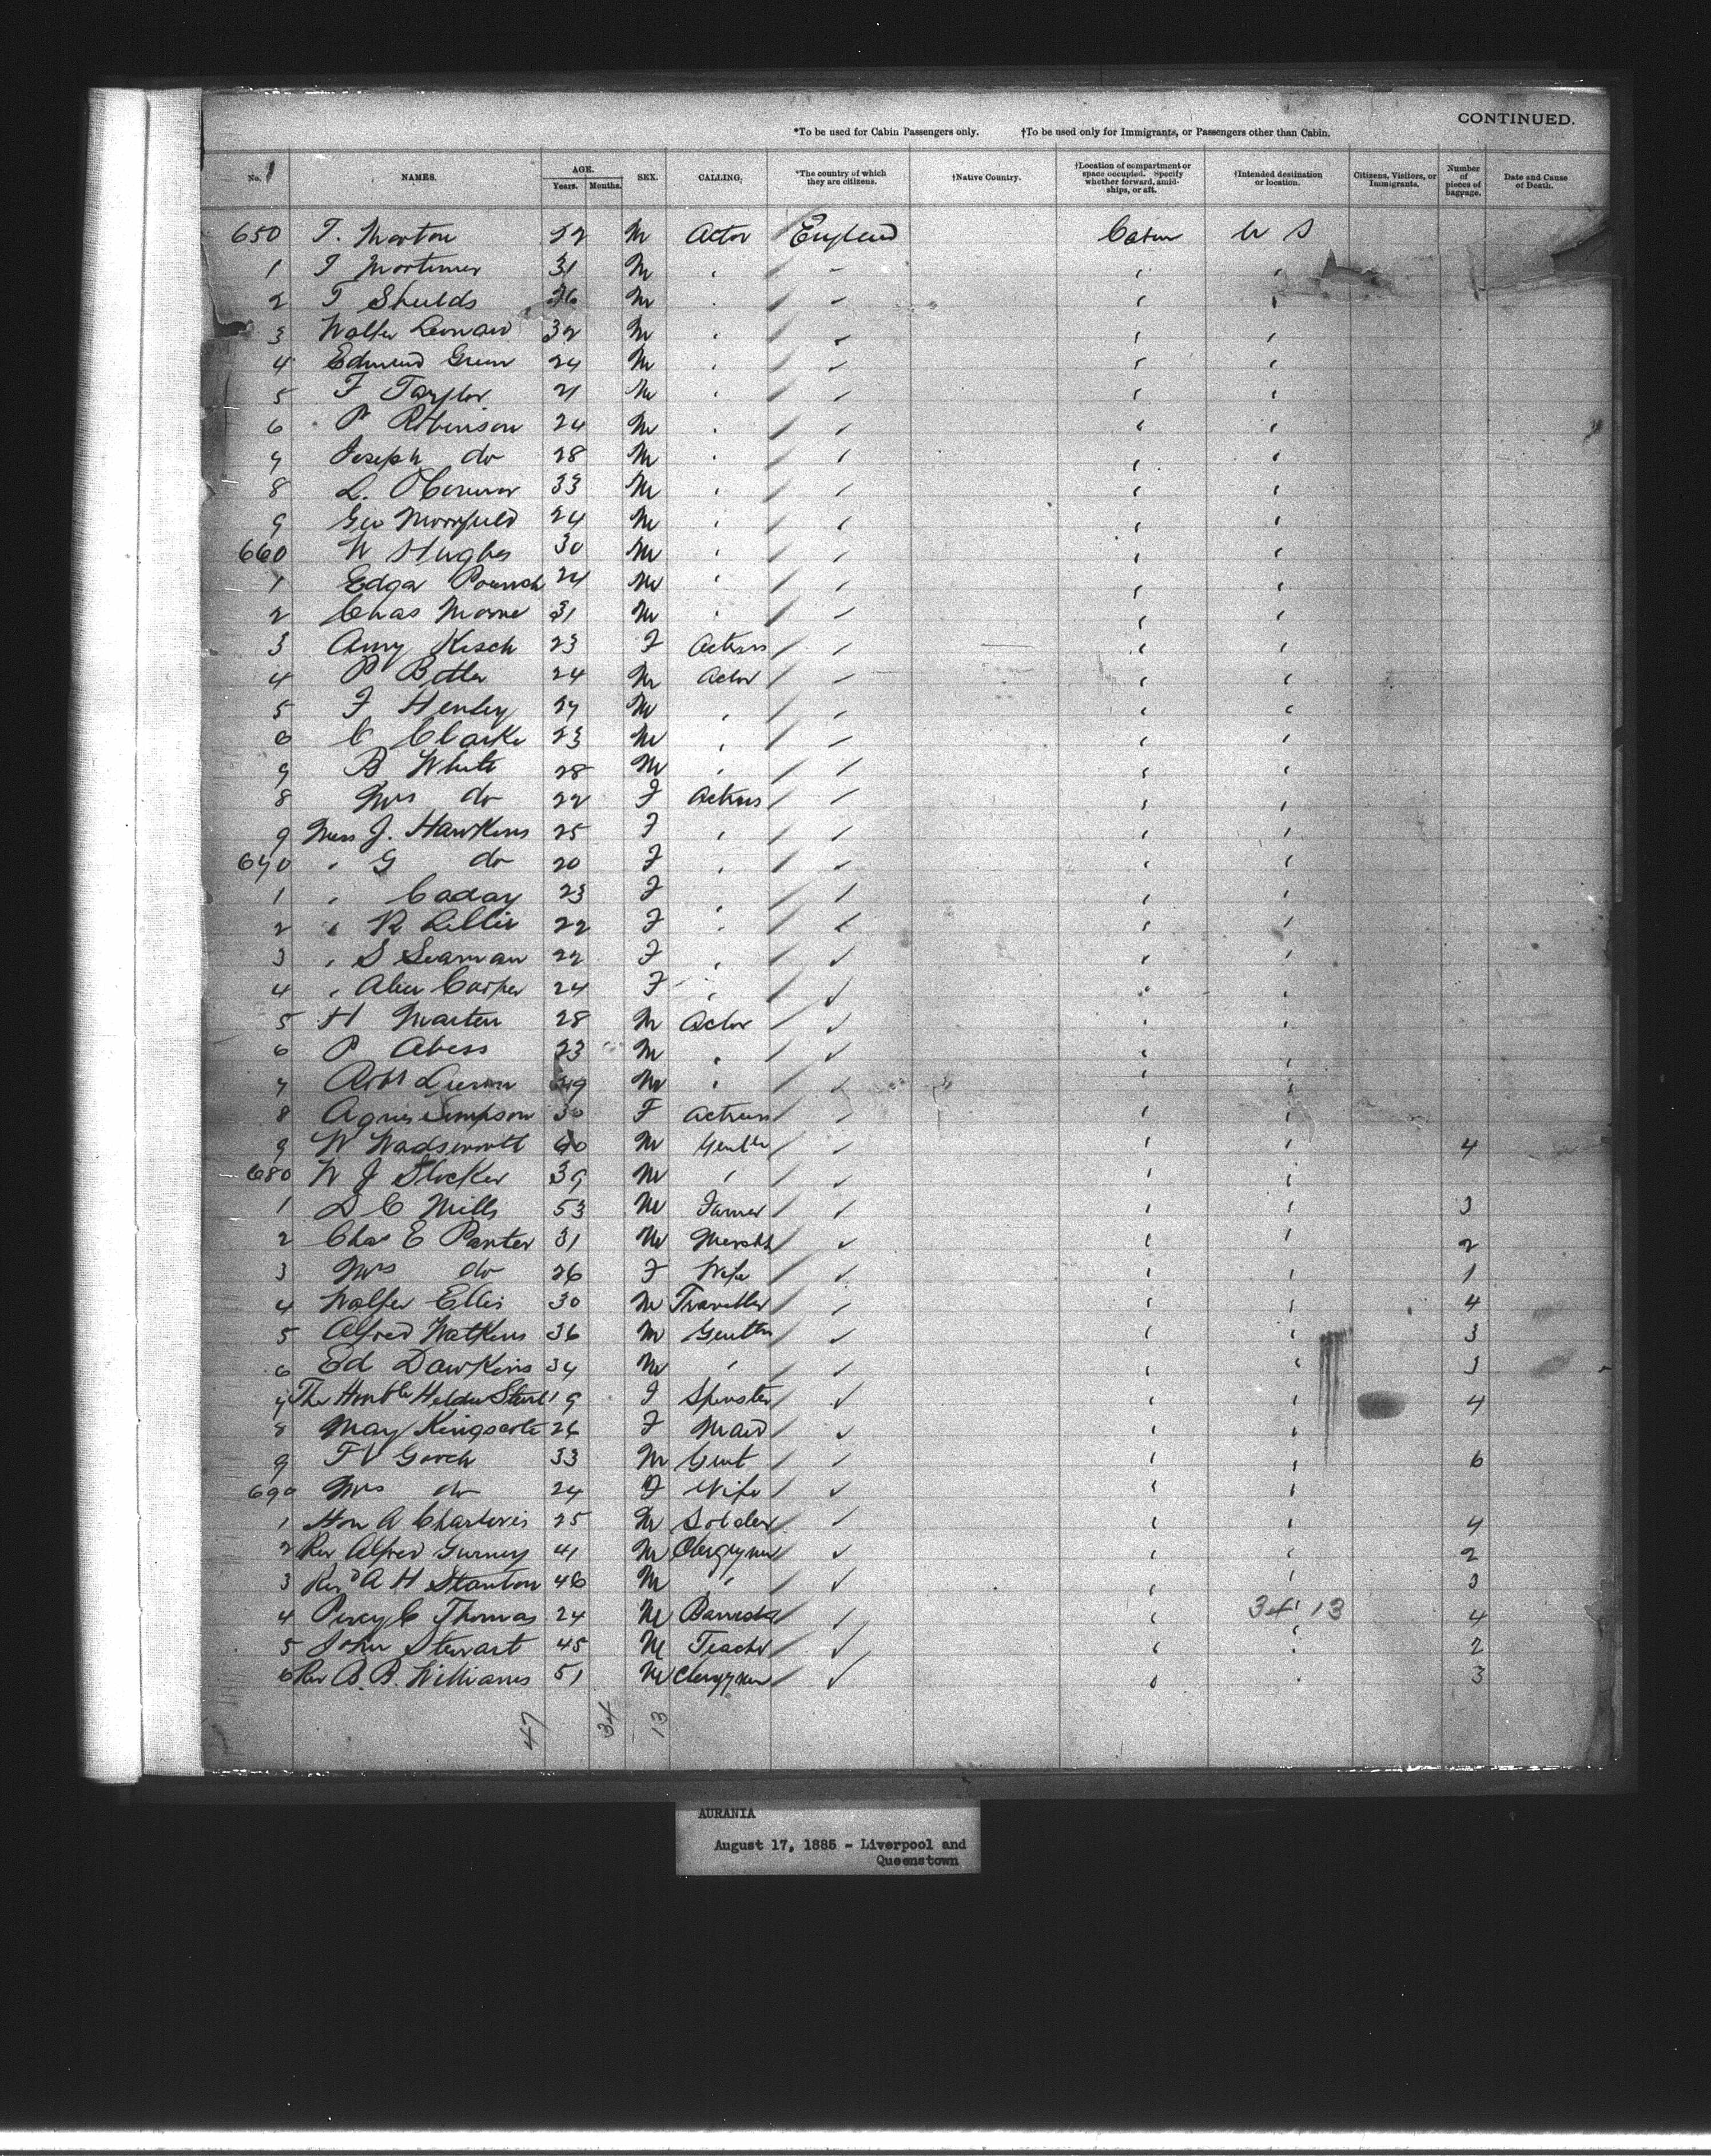 CONTINUED.
*To be used for Cabin Passengers only. †To be used only for Immigrants, or Passengers other than Cabin.
No. 1 NAMES. AGE. Years. Months. SEX. CALLING. *The country of which they are citizens. †Native Country. †Location of compartment or space occupied. Specify whether forward, amidships, or aft. †Intended destination or location. Citizens, Visitors, or Immigrants. Number of pieces of baggage. Date and Cause of Death.
650 T. Morton 22 M Actor England Cabin U S
1 T Mortimer 31 M
2 T Shields 26 M
3 Walter Leonard 32 M
4 Edmund Green 24 M
5 F Taylor 21 M
6 P Robinson 24 M
7 Joseph do 28 M
8 L. O'Connor 33 M
9 Geo Merryfield 24 M
660 W Hughes 30 M
1 Edgar 24 M
2 Chas Moore 31 M
3 Amy Kisch 23 F Actress
4 P Butler 24 M Actor
5 F Henley 27 M
6 C Clarke 23 M
7 B White 28 M
8 Mrs do 22 F Actress
9 Miss J. Hawkins 25 F
670 " G do 20 F
1 " Caday 23 F
2 " R Lillie 22 F
3 " S Seaman 22 F
4 " Alice 24 F
5 H Marten 28 M Actor
6 P Abess 23 M
7 49 M
8 Agnes Simpson 30 F Actress
9 W Wadsworth 40 M Gentln 4
680 W J Stocker 39 M "
1 D C Mills 53 M Farmer 3
2 Chas E Panter 31 M Mercht 2
3 Mrs do 26 F Wife 1
4 Walter Ellis 30 M Traveller 4
5 Alfred Watkins 36 M Gentln 3
6 Ed Dawkins 34 M " 3
7 The Honble 19 F Spinster 4
8 May Kingscote 26 F Maid
9 F V Gooch 33 M Gent 6
690 Mrs do 24 F Wife
1 Hon A Charteris 25 M Soldier 4
2 Rev Alfred Gurney 41 M Clergyman 2
3 Revd A H Stanton 46 M " 3
4 Percy C Thomas 24 M Barrister 34 13 4
5 John Stewart 45 M Teacher 2
6 Rev A. B. Williams 51 M Clergyman 3
47 34 13
AURANIA
August 17, 1885 - Liverpool and
Queenstown